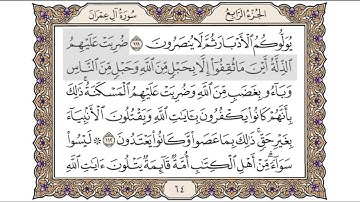 سُورَةُ آلِ عِمْرَانَ الجُزْءُ الرَّابِعُ
يُوَلُّوكُمُ ٱلْأَدْبَارَ ثُمَّ لَا يُنصَرُونَ ١١١ ضُرِبَتْ عَلَيْهِمُ
ٱلذِّلَّةُ أَيْنَ مَا ثُقِفُوٓا۟ إِلَّا بِحَبْلٍ مِّنَ ٱللَّهِ وَحَبْلٍ مِّنَ ٱلنَّاسِ
وَبَآءُو بِغَضَبٍ مِّنَ ٱللَّهِ وَضُرِبَتْ عَلَيْهِمُ ٱلْمَسْكَنَةُ ۚ ذَٰلِكَ
بِأَنَّهُمْ كَانُوا۟ يَكْفُرُونَ بِـَٔايَـٰتِ ٱللَّهِ وَيَقْتُلُونَ ٱلْأَنۢبِيَآءَ
بِغَيْرِ حَقٍّ ۚ ذَٰلِكَ بِمَا عَصَوا۟ وَّكَانُوا۟ يَعْتَدُونَ ١١٢ ۞ لَيْسُوا۟
سَوَآءً ۗ مِّنْ أَهْلِ ٱلْكِتَـٰبِ أُمَّةٌ قَآئِمَةٌ يَتْلُونَ ءَايَـٰتِ ٱللَّهِ
٦٤